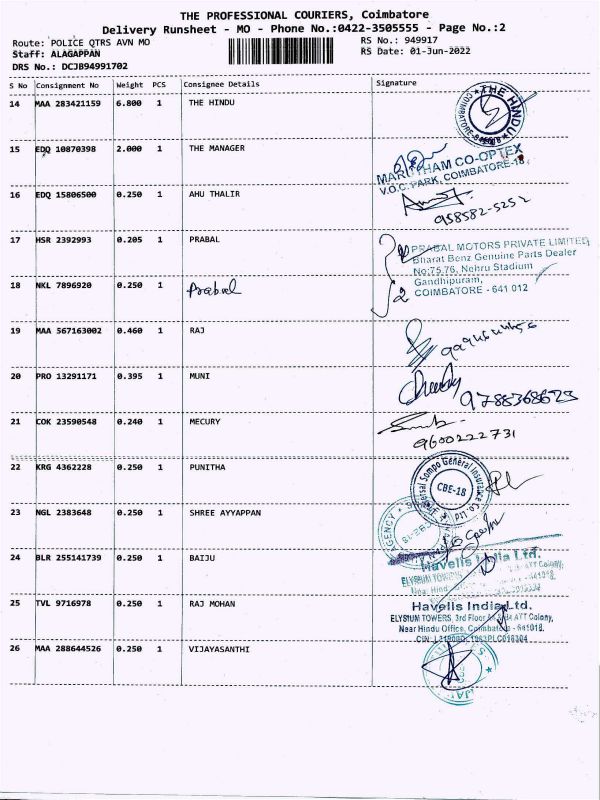 THE PROFESSIONAL COURIERS, Coimbatore
Delivery Runsheet - MO - Phone No.:0422-3505555 - Page No.:2
Route: POLICE QTRS AVN MO
RS No.: 949917
Staff: ALAGAPPAN
RS Date: 01-Jun-2022
DRS No.: DCJB94991702
S No Consignment No Weight PCS Consignee Details Signature
14 MAA 283421159 6.800 1 THE HINDU
THE HINDU
15 EDQ 10870398 2.000 1 THE MANAGER
CO-OPTEX
V.O.C. PARK, COIMBATORE-18
16 EDQ 15806500 0.250 1 AHU THALIR
958582-5252
17 HSR 2392993 0.205 1 PRABAL
PRABAL MOTORS PRIVATE LIMITED
Bharat Benz Genuine Parts Dealer
No:75,76, Nehru Stadium
Gandhipuram,
COIMBATORE - 641 012
18 NKL 7896920 0.250 1 Prabal
2
19 MAA 567163002 0.460 1 RAJ
20 PRO 13291171 0.395 1 MUNI
21 COK 23590548 0.240 1 MECURY
9600222731
22 KRG 4362228 0.250 1 PUNITHA
Sompo General Insurance
CBE-18
23 NGL 2383648 0.250 1 SHREE AYYAPPAN
AGENCY
24 BLR 255141739 0.250 1 BAIJU
Havells India Ltd.
ELYSIUM TOWERS
25 TVL 9716978 0.250 1 RAJ MOHAN
Havells India Ltd.
ELYSIUM TOWERS, 3rd Floor ATT Colony,
Near Hindu Office, Coimbatore - 641018.
26 MAA 288644526 0.250 1 VIJAYASANTHI